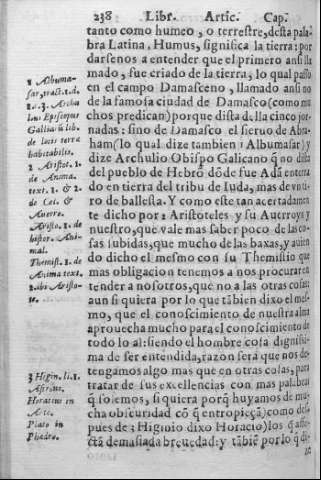 238 Libr. Artic. Cap.
tanto como humeo, o terrestre, desta pala-
bra Latina, Humus, significa la tierra: por
darsenos a entender que el primero ansi lla
mado, fue criado de la tierra, lo qual passo
en el campo Damasceno, llamado ansi no
de la famosa ciudad de Damasco (como mu
chos predican) porque dista della cinco jor-
nadas: sino de Damasco el sieruo de Abra-
ham (lo qual dize tambien 1 Albumasar) y
dize Archulio Obispo Galicano q̃ no dista
del pueblo de Hebrõ dõde fue Adã enterra
do en tierra del tribu de Iuda, mas de vn ti-
ro de ballesta. Y como este tan acertadamen
te dicho por 2 Aristoteles y su Auerroys y
nuestro, que vale mas saber poco de las co-
sas subidas, que mucho de las baxas, y auien
do dicho el mesmo con su Themistio que
mas obligacion tenemos a nos procurar en
tender a nosotros, que no a las otras cosas:
aun si quiera por lo que tãbien dixo el mes-
mo, que el conoscimiento de nuestra alma
aprouecha mucho para el conoscimiento de
todo lo al: siendo el hombre cosa dignissi-
ma de ser entendida, razon sera que nos de-
tengamos algo mas que en otras cosas, para
tratar de sus excellencias con mas palabras
q̃ solemos, si quiera porq̃ huyamos de mu-
cha obscuridad cõ q̃ entropieça (como des-
pues de 3 Higinio dixo Horacio) los q̃ afe-
ctã demasiada breuedad: y tãbiẽ por lo q̃ di-
1 Albuma-
sar, tract. 1. d.
1. d. 3. Archu
lius Episcopus
Gallia in lib.
de locis terra
habitabilis.
2 Aristot. 1.
de Anima.
text. 1. & 2.
de Cæl. &
Auerr.
Aristo. 1. de
histor. Ani-
mal.
Themist. 1. de
Anima text.
2. ibi Aristo-
te.
3 Higin. li. 1.
Astron.
Horatius in
Arte.
Plato in
Phædro.